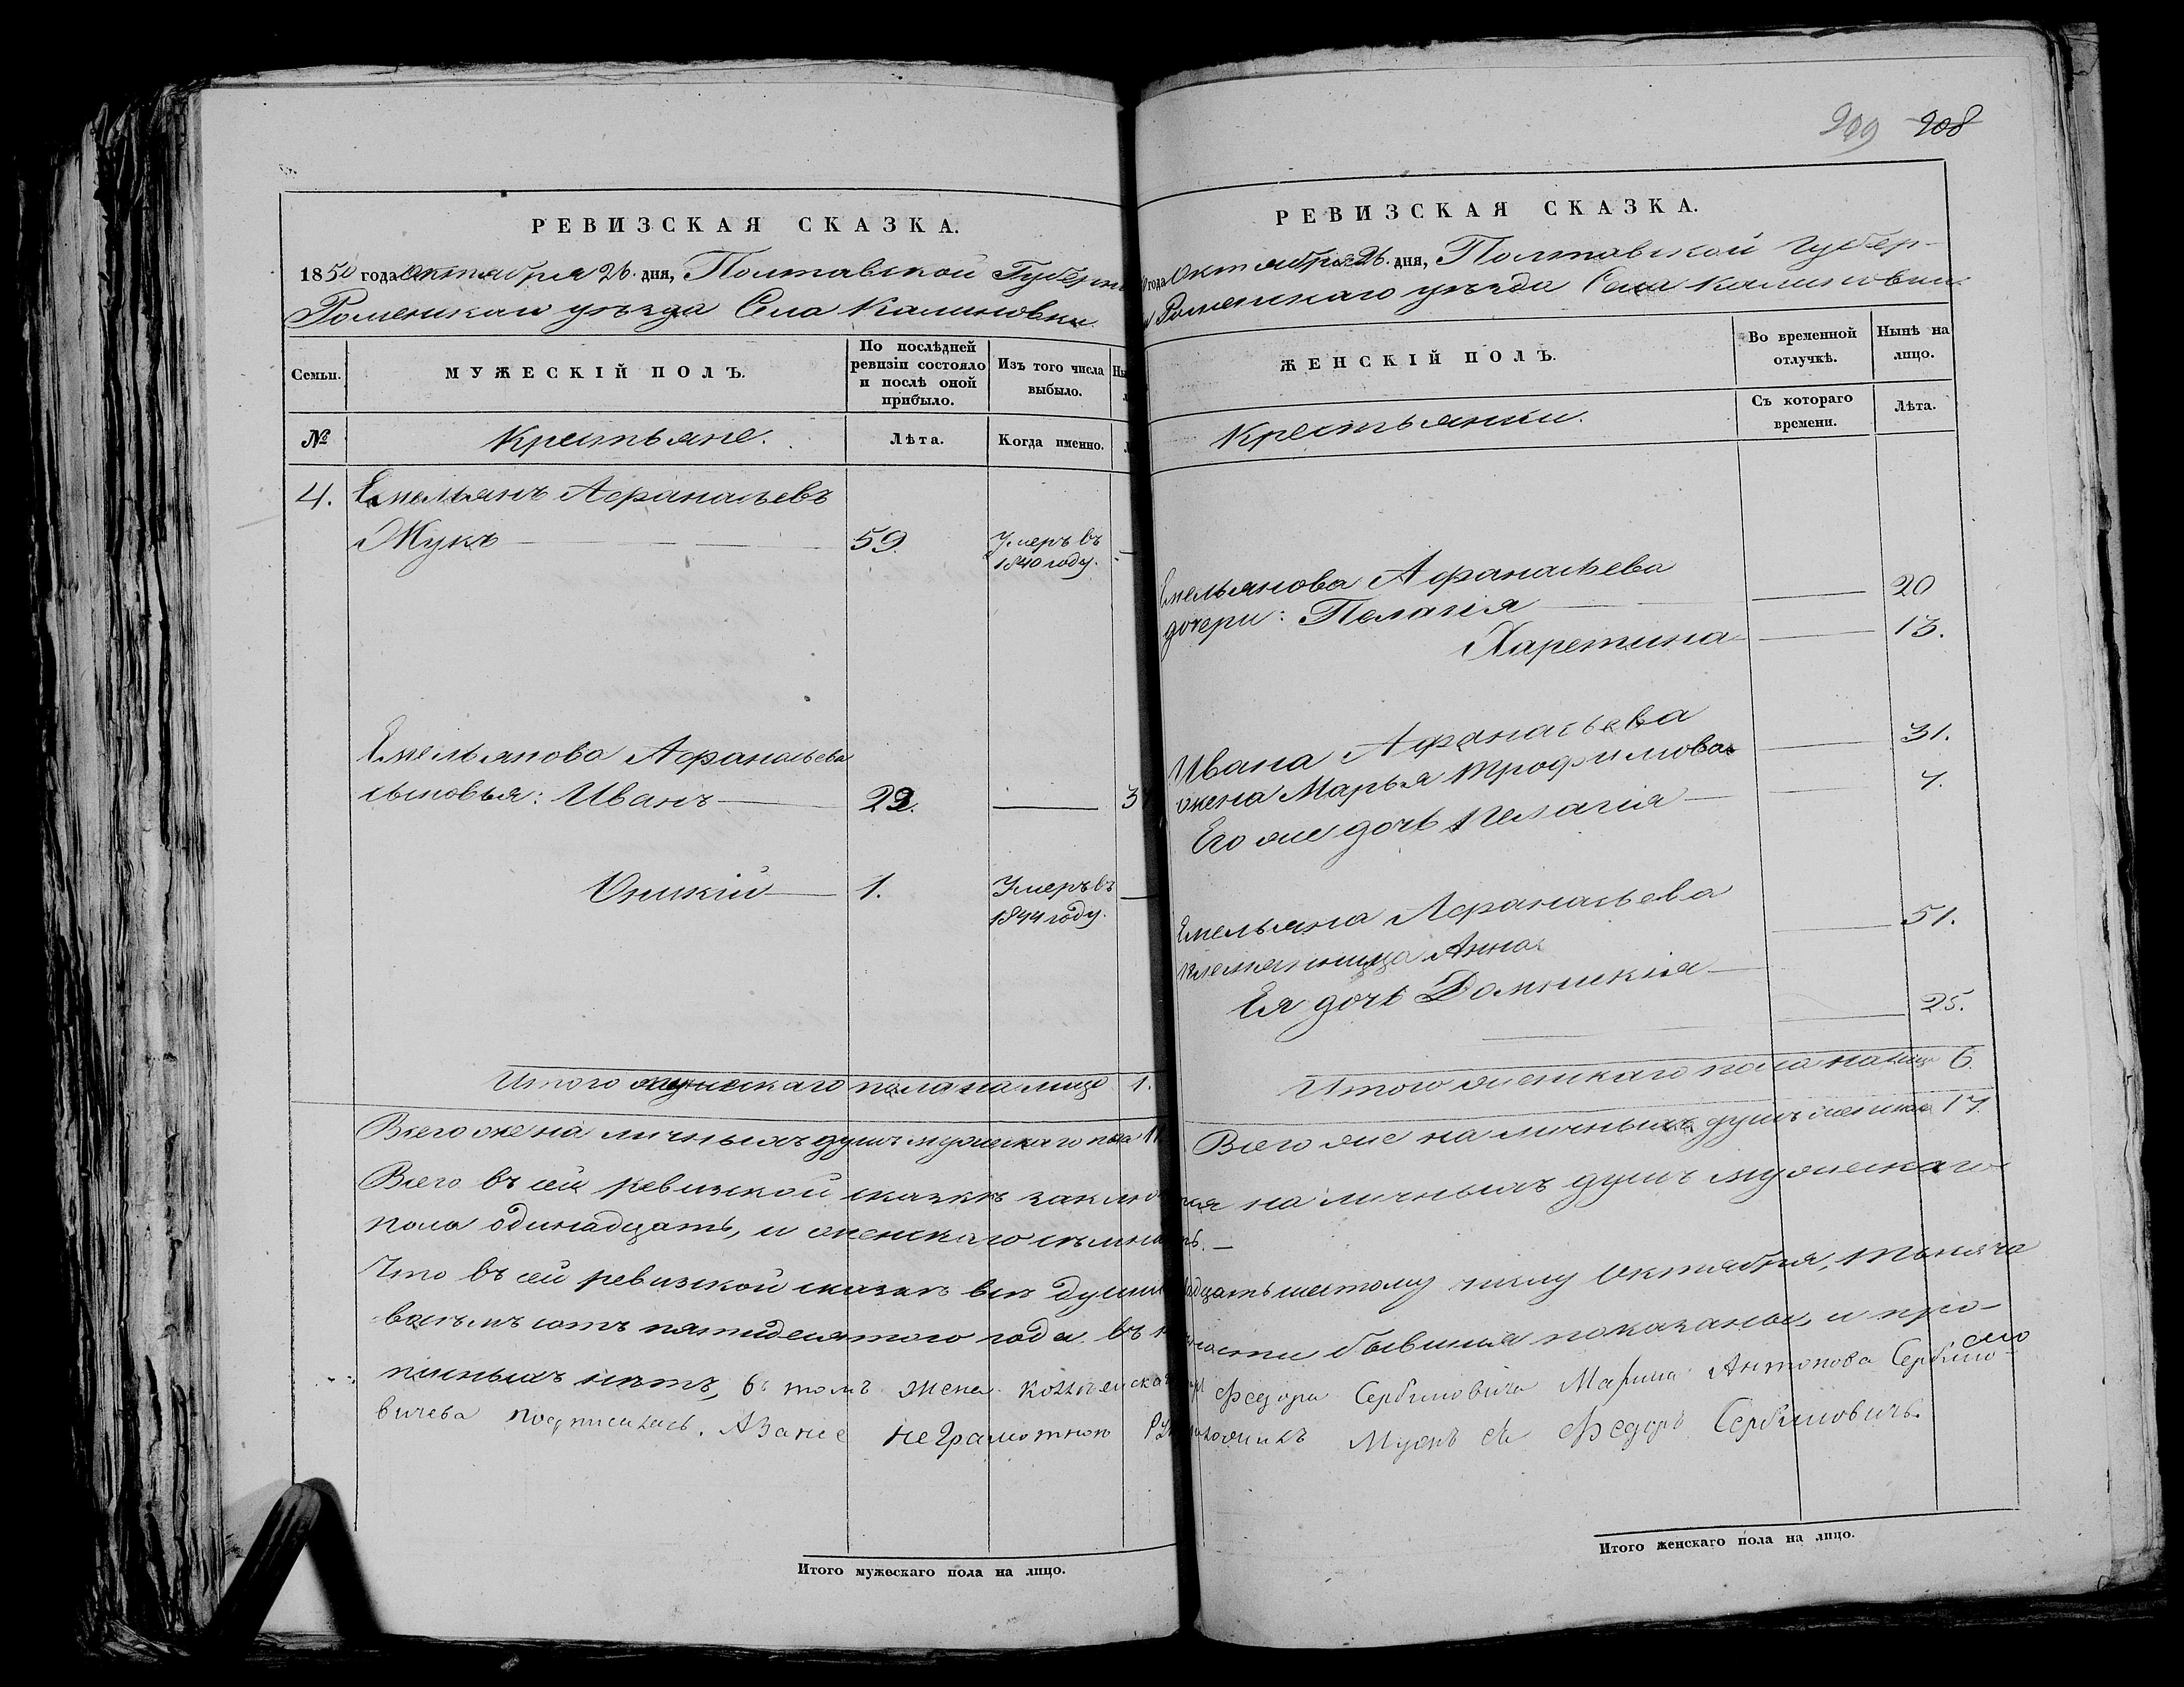 209 208
РЕВИЗСКАЯ СКАЗКА.
1850 года Октября 26. дня, Полтавской Губерн
Роменскаго уѣзда Села Калиновки
Семьи.
МУЖЕСКІЙ ПОЛЪ.
По послѣдней ревизіи состояло и послѣ оной прибыло.
Изъ того числа выбыло.
№
Крестьяне.
Лѣта.
Когда именно.
4. Емельянъ Афанасьевъ
Жукъ 59. Умеръ въ 1840 году.
Емельянова Афанасьева
сыновья: Иванъ 22. 3
Оникій 1. Умеръ въ 1844 году.
Итого мужескаго пола на лицо 1.
Всего же на личныхъ душъ мужескаго пола 11
Всего въ сей ревизской сказкѣ заклю
пола одинадцать, и женскаго семна
Что въ сей ревизской сказкѣ всѣ души
восемъ сотъ пятидесятого года въ
писныхъ нѣтъ, въ томъ жена
вичева подписалась. А За нее неграмотною
Итого мужескаго пола на лицо.
РЕВИЗСКАЯ СКАЗКА.
года Октября 26. дня, Полтавской Губер-
Роменскаго уѣзда Села Калиновки
ЖЕНСКІЙ ПОЛЪ.
Во временной отлучкѣ.
Нынѣ на лицо.
Крестьянки.
Съ котораго времени.
Лѣта.
Емельянова Афанасьева
дочери: Пелагія 20
Харетина 13.
Ивана Афанасьева
жена Марья Трофимова 31.
Его же дочь Пелагія 7.
Емельяна Афанасьева
племянница Анна 51.
Ея дочь Домникія 25.
Итого женскаго пола на лицо 6.
Всего же на личныхъ душъ женска 17.
на личныхъ душъ мужескаго
дцать шестому числу Октября, тысяча
бывшия показаны, и про-
Федора Сербиновича Марина Антонова Сербино
Мужъ ея Федоръ Сербиновичъ.
Итого женскаго пола на лицо.